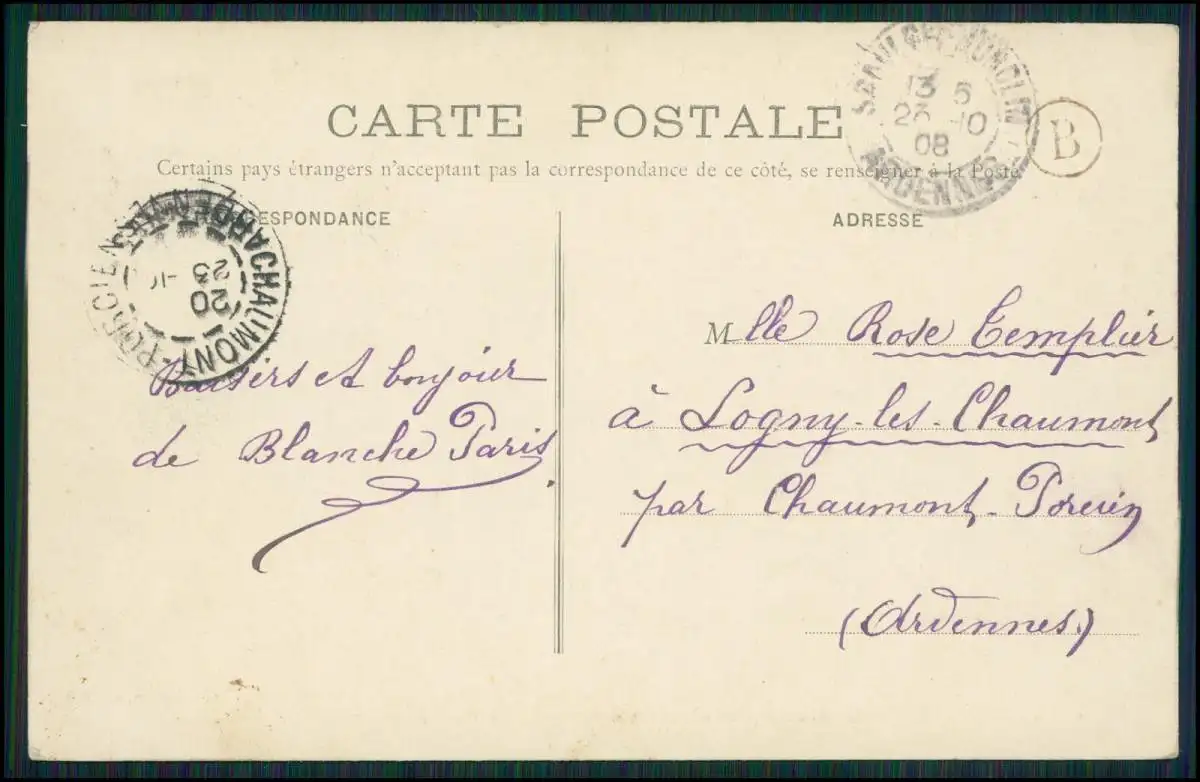 CARTE POSTALE
Certains pays étrangers n'acceptant pas la correspondance de ce côté, se renseigner à la Poste
CORRESPONDANCE
ADRESSE
13 5
10
08
ARDENNES
B
CHAUMONT-PORCIEN
ARDENNES
20
23
Baisers et bonjour
de Blanche Paris
Mlle Rose Templier
à Logny-les-Chaumont
par Chaumont-Porcien
(Ardennes)